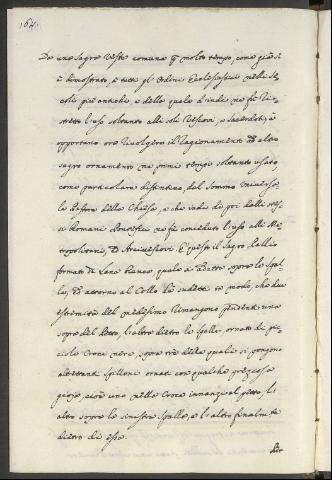 164.
Da uno Sagro Vesto comune p molto tempo, come già si
è dimostrato, a tutti gl' Ordini Ecclesiastici nelli Se,
coli più antichi, e della quale d'indi ne fù Ri,
stretto l'uso soltanto alli soli Vescovi, e Sacerdoti, è
opportuno ora rivolgere il ragionamento ad altro
sagro ornamento ne primi tempi soltanto usato,
come particolare distintivo, dal Sommo Universa,
le Pastore della Chiesa, e che indi di poi dalli stes,
si Romani Pontefici ne fù conceduto l'uso alli Me,
tropolitani, ed Arcivescovi. E' questo il Sagro Pallio
formato di Lana bianca, quale s' adatta sopra le Spal,
le, ed attorno al Collo in modo, che due
estremità del medesimo rimangono pendenti una
sopra del Petto, l'altra dietro le Spalle, ornato di pic,
ciole Croci nere, sopra trè delle quali si pongono
altrettanti Spilloni ornati con qualche preziosa
gioja, cioè uno nella Croce innanzi al petto, l'
altro sopra la sinistra Spalla, e l'altro finalmente
dietro di essa.